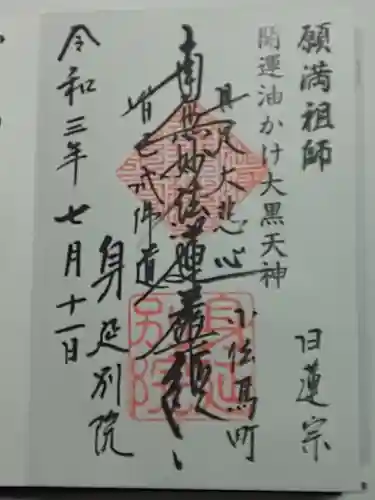 願満祖師
日蓮宗
開運油かけ大黒天神
小伝馬町
具足大悲心
南無妙法蓮華経
皆已成佛道
身延別院
令和三年七月十一日
身延別院